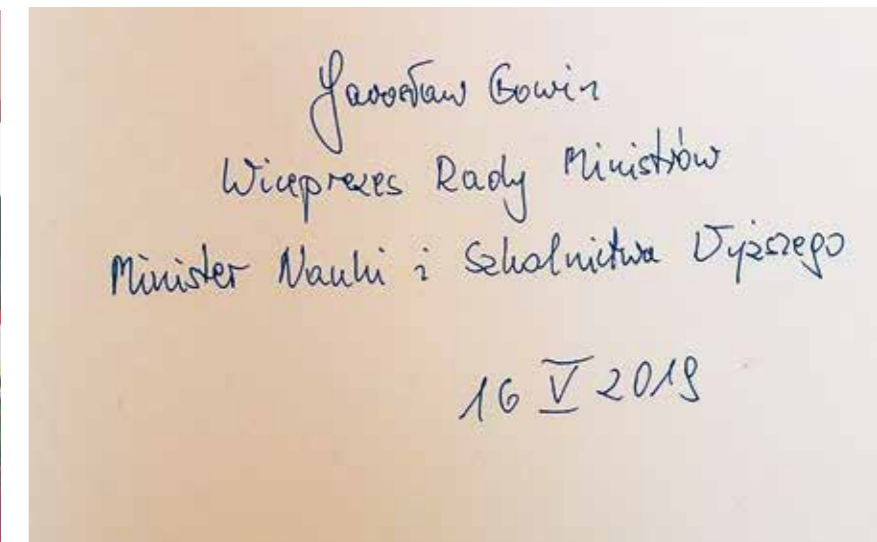 Jarosław Gowin
Wiceprezes Rady Ministrów
Minister Nauki i Szkolnictwa Wyższego
16 V 2019